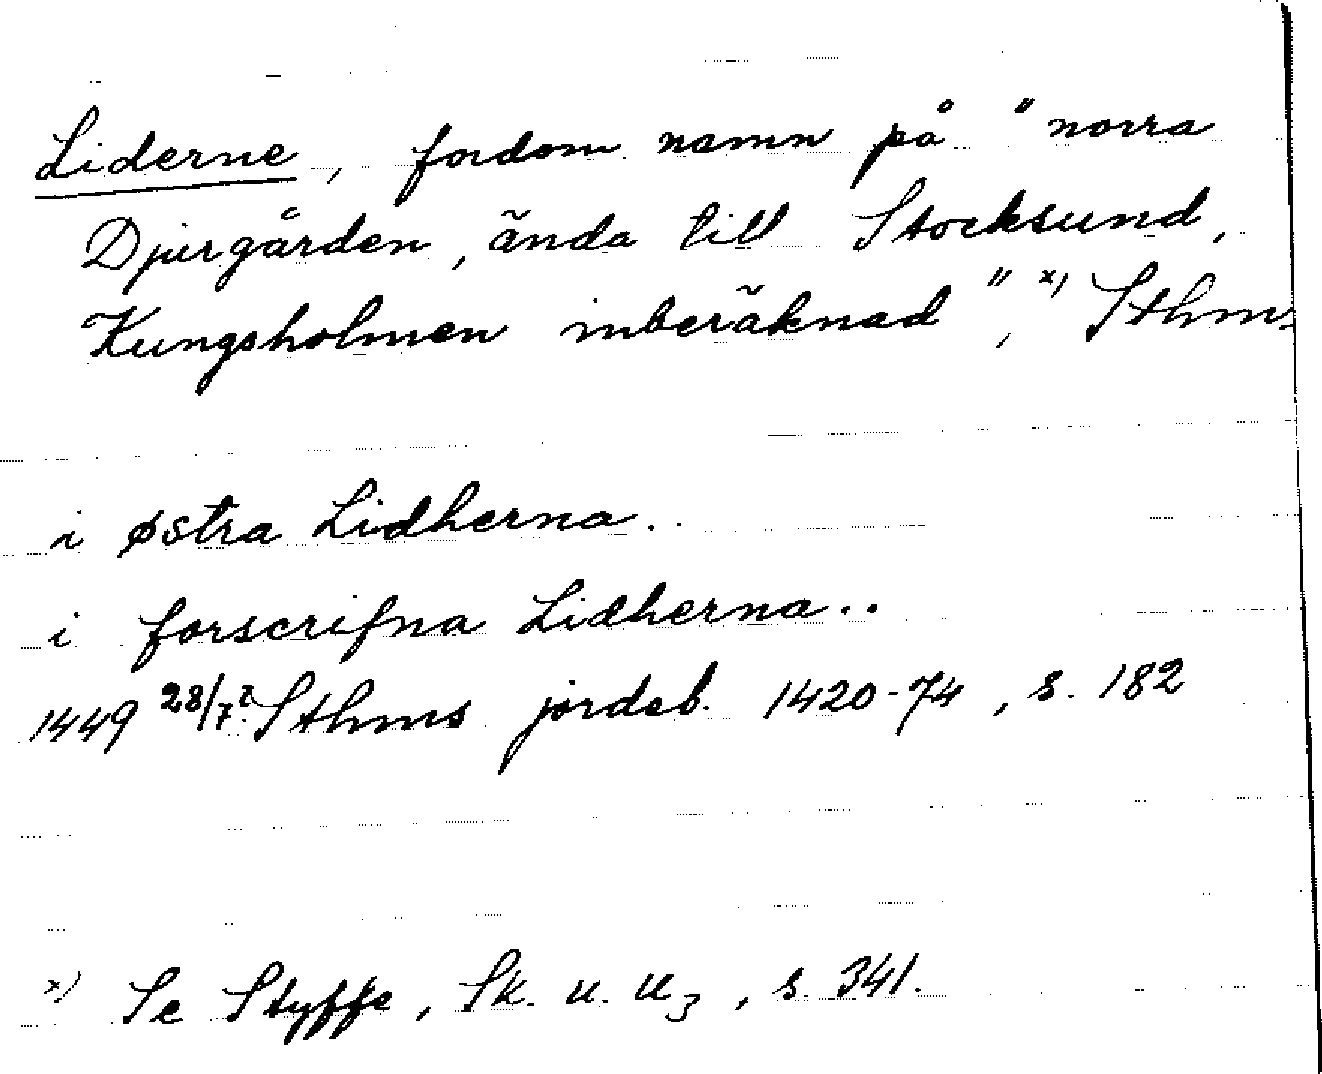 Liderne, fordom namn på "norra
Djurgården, ända till Stocksund,
Kungsholmen inberäknad", x) Sthm
i østra Lidherna..
i forscrifna Lidherna..
1449 28/7? Sthms jordeb. 1420-74, s. 182
x) Se Styffe, Sk. u. U3, s. 341.